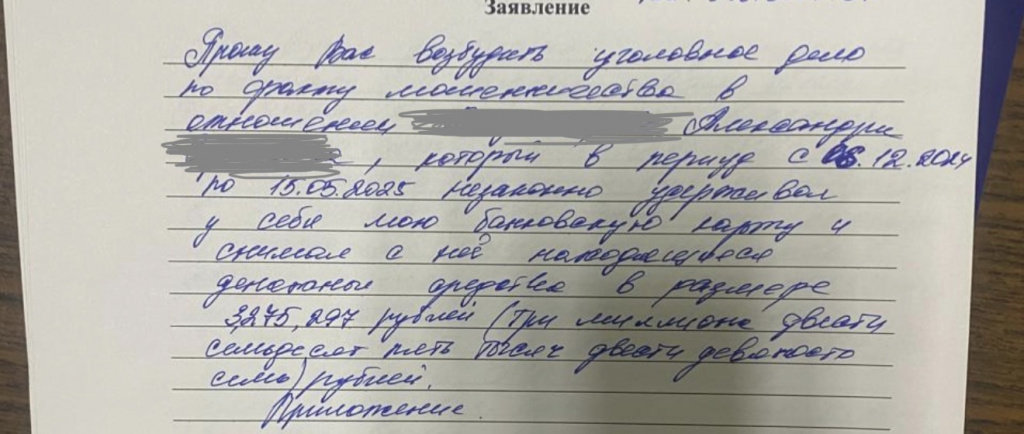 Заявление
Прошу Вас возбудить уголовное дело
по факту мошенничества в
отношении Александри
, который в период с 06.12.2024
по 15.05.2025 незаконно удерживал
у себя мою банковскую карту и
снимал с неё находящиеся
денежные средства в размере
3,275,297 рублей (Три миллиона двести
семьдесят пять тысяч двести девяносто
семь) рублей.
Приложение.